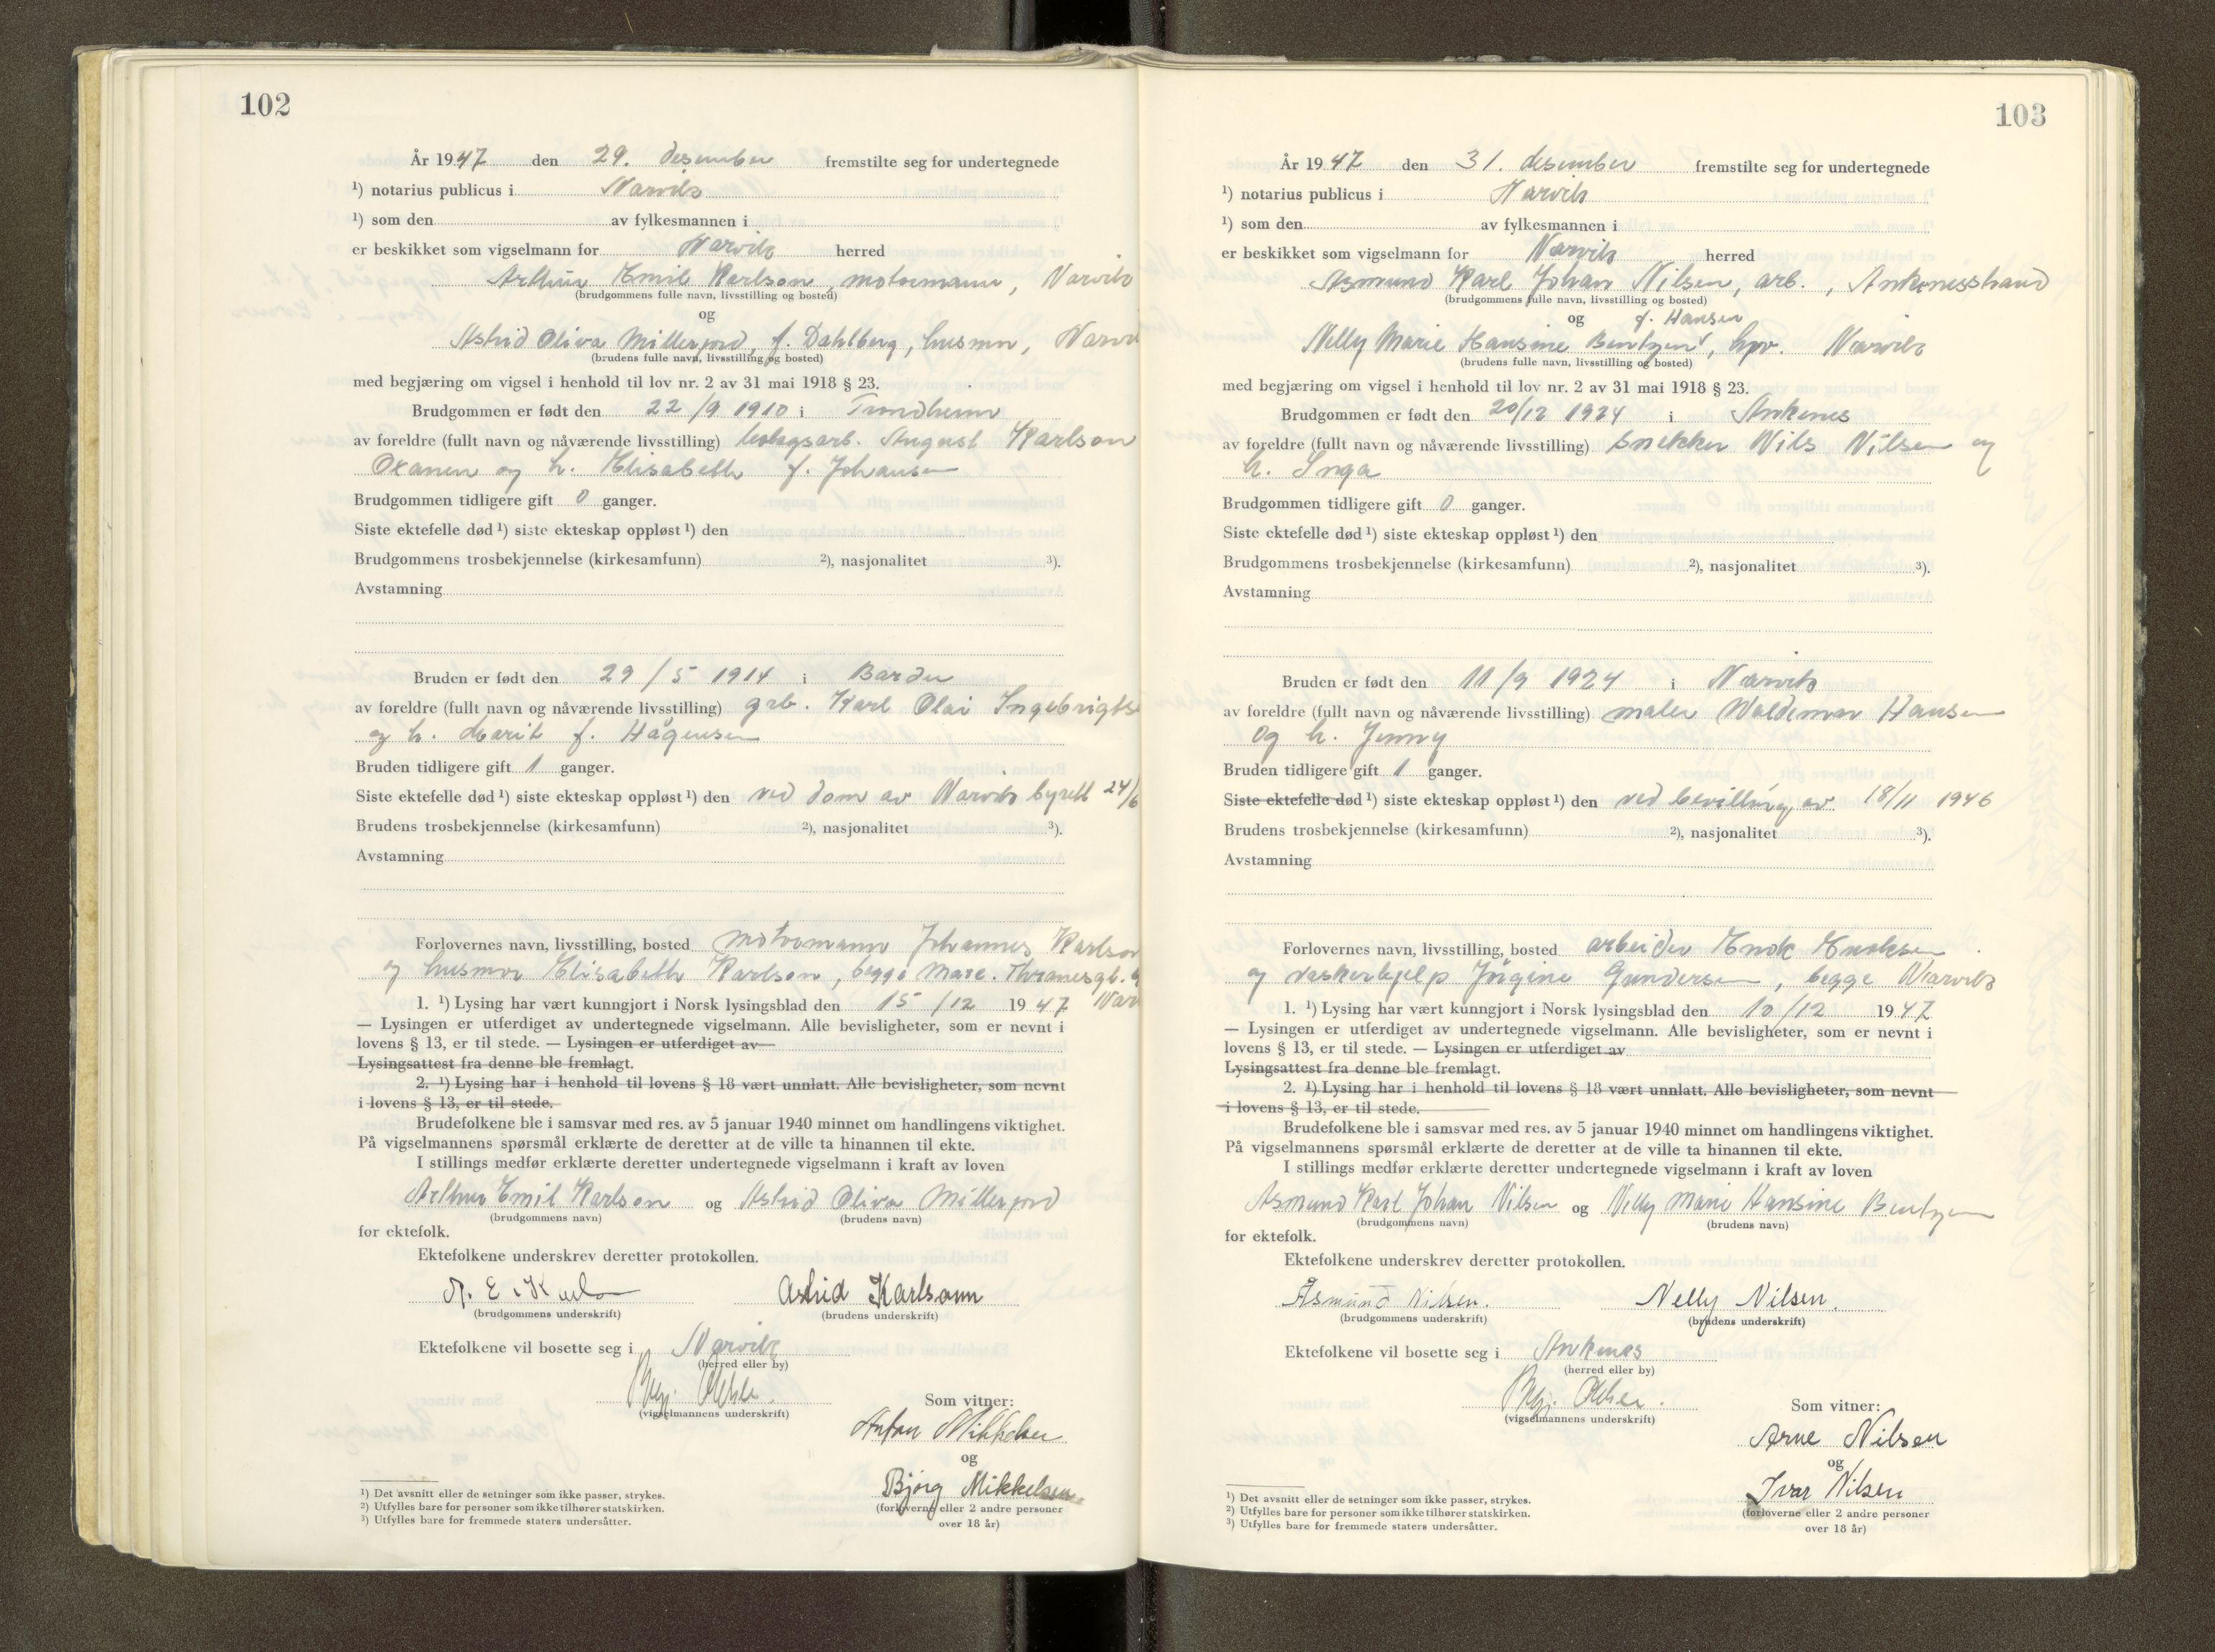 102
År 1947 den 29. desember fremstilte seg for undertegnede
¹) notarius publicus i Narvik
¹) som den av fylkesmannen i
er beskikket som vigselmann for Narvik herred
Arthur Emil Karlson, motormann, Narvik
(brudgommens fulle navn, livsstilling og bosted)
og
Astrid Oliva Millerjord, f. Dahlberg, husmor, Narvi
(brudens fulle navn, livsstilling og bosted)
med begjæring om vigsel i henhold til lov nr. 2 av 31 mai 1918 § 23.
Brudgommen er født den 22/9 1910 i Trondheim
av foreldre (fullt navn og nåværende livsstilling) bolagsarb. August Karlson
Oxanen og h. Elisabeth f. Johansen
Brudgommen tidligere gift 0 ganger.
Siste ektefelle død ¹) siste ekteskap oppløst ¹) den
Brudgommens trosbekjennelse (kirkesamfunn) ²), nasjonalitet ³).
Avstamning
Bruden er født den 29/5 1914 i Bardu
av foreldre (fullt navn og nåværende livsstilling) grb. Karl Olai Ingebrigts
og h. Marit f. Hågensen
Bruden tidligere gift 1 ganger.
Siste ektefelle død ¹) siste ekteskap oppløst ¹) den ved dom av Narvik byrett 24/6
Brudens trosbekjennelse (kirkesamfunn) ²), nasjonalitet ³).
Avstamning
Forlovernes navn, livsstilling, bosted motormann Johannes Karlson
og husmor Elisabeth Karlson, begge Marc. Thranesgt.
1. ¹) Lysing har vært kunngjort i Norsk lysingsblad den 15/12 1947 Nar
— Lysingen er utferdiget av undertegnede vigselmann. Alle bevisligheter, som er nevnt i
lovens § 13, er til stede. — Lysingen er utferdiget av
Lysingsattest fra denne ble fremlagt.
2. ¹) Lysing har i henhold til lovens § 18 vært unnlatt. Alle bevisligheter, som nevnt
i lovens § 13, er til stede.
Brudefolkene ble i samsvar med res. av 5 januar 1940 minnet om handlingens viktighet.
På vigselmannens spørsmål erklærte de deretter at de ville ta hinannen til ekte.
I stillings medfør erklærte deretter undertegnede vigselmann i kraft av loven
Arthur Emil Karlson og Astrid Oliva Millerjord
(brudgommens navn) (brudens navn)
for ektefolk.
Ektefolkene underskrev deretter protokollen.
A. E. Karlso Astrid Karlsonn
(brudgommens underskrift) (brudens underskrift)
Ektefolkene vil bosette seg i Narvik
(herred eller by)
(vigselmannens underskrift)
Som vitner:
Anton Mikkelsen
og
Bjørg Mikkelsen
(forloverne eller 2 andre personer
over 18 år)
¹) Det avsnitt eller de setninger som ikke passer, strykes.
²) Utfylles bare for personer som ikke tilhører statskirken.
³) Utfylles bare for fremmede staters undersåtter.
103
År 1947 den 31. desember fremstilte seg for undertegnede
¹) notarius publicus i Narvik
¹) som den av fylkesmannen i
er beskikket som vigselmann for Narvik herred
Asmund Karl Johan Nilsen, arb., Ankenesstrand
(brudgommens fulle navn, livsstilling og bosted)
og f. Hansen
Nelly Marie Hansine Bentzen, hpr. Narvik
(brudens fulle navn, livsstilling og bosted)
med begjæring om vigsel i henhold til lov nr. 2 av 31 mai 1918 § 23.
Brudgommen er født den 20/12 1924 i Ankenes
av foreldre (fullt navn og nåværende livsstilling) snekker Nils Nilsen og
h. Inga
Brudgommen tidligere gift 0 ganger.
Siste ektefelle død ¹) siste ekteskap oppløst ¹) den
Brudgommens trosbekjennelse (kirkesamfunn) ²), nasjonalitet ³).
Avstamning
Bruden er født den 11/9 1924 i Narvik
av foreldre (fullt navn og nåværende livsstilling) maler Waldemar Hansen
og h. Jenny
Bruden tidligere gift 1 ganger.
Siste ektefelle død ¹) siste ekteskap oppløst ¹) den ved bevilling av 18/11 1946
Brudens trosbekjennelse (kirkesamfunn) ²), nasjonalitet ³).
Avstamning
Forlovernes navn, livsstilling, bosted arbeider Enok Enoksen
og vaskerhjelp Jørgine Gundersen, begge Narvik
1. ¹) Lysing har vært kunngjort i Norsk lysingsblad den 10/12 1947
— Lysingen er utferdiget av undertegnede vigselmann. Alle bevisligheter, som er nevnt i
lovens § 13, er til stede. — Lysingen er utferdiget av
Lysingsattest fra denne ble fremlagt.
2. ¹) Lysing har i henhold til lovens § 18 vært unnlatt. Alle bevisligheter, som nevnt
i lovens § 13, er til stede.
Brudefolkene ble i samsvar med res. av 5 januar 1940 minnet om handlingens viktighet.
På vigselmannens spørsmål erklærte de deretter at de ville ta hinannen til ekte.
I stillings medfør erklærte deretter undertegnede vigselmann i kraft av loven
Asmund Karl Johan Nilsen og Nelly Marie Hansine Bentzen
(brudgommens navn) (brudens navn)
for ektefolk.
Ektefolkene underskrev deretter protokollen.
Åsmund Nilsen. Nelly Nilsen.
(brudgommens underskrift) (brudens underskrift)
Ektefolkene vil bosette seg i Ankenes
(herred eller by)
(vigselmannens underskrift)
Som vitner:
Arne Nilsen
og
Ivar Nilsen
(forloverne eller 2 andre personer
over 18 år)
¹) Det avsnitt eller de setninger som ikke passer, strykes.
²) Utfylles bare for personer som ikke tilhører statskirken.
³) Utfylles bare for fremmede staters undersåtter.